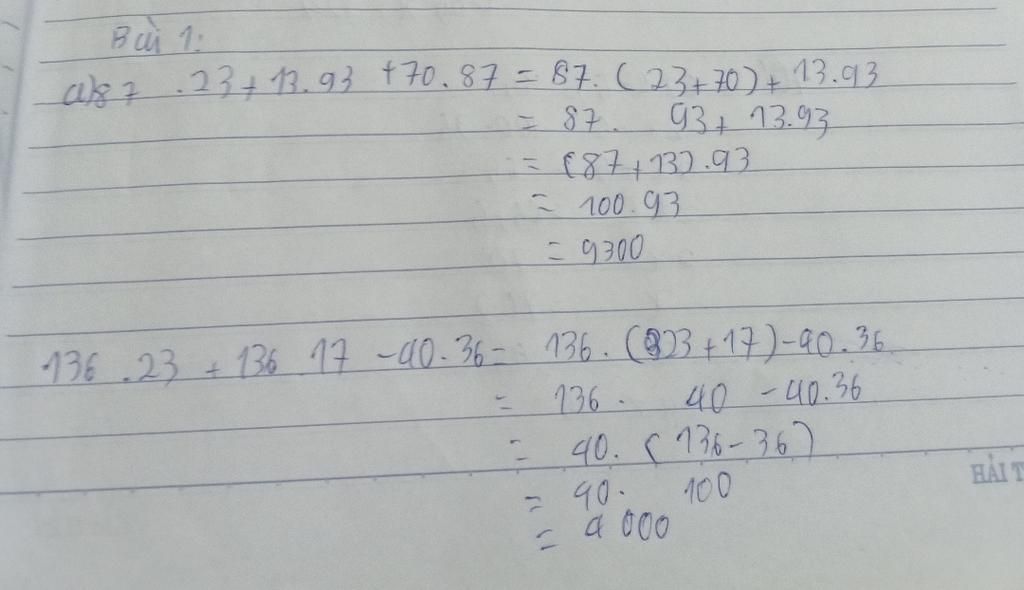 Bài 1:
a) 87 . 23 + 13.93 + 70.87 = 87. (23+70) + 13.93
= 87. 93 + 13.93
= (87 + 13) . 93
= 100.93
= 9300
136 . 23 + 136 17 - 40.36 = 136. (23 + 17) - 40.36
= 136. 40 - 40.36
= 40. (136 - 36)
= 40. 100
= 4000
HẢI T